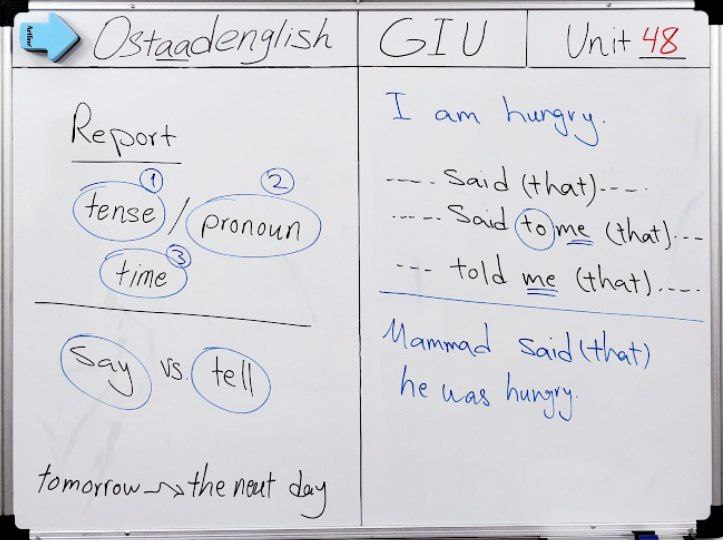 Ostaadenglish
GIU
Unit 48
Report
1 2
tense / pronoun
3
time
say vs. tell
tomorrow → the next day
I am hungry.
---- Said (that) ----.
----- Said to me (that) ---
--- told me (that) ----.
Mammad said (that)
he was hungry.